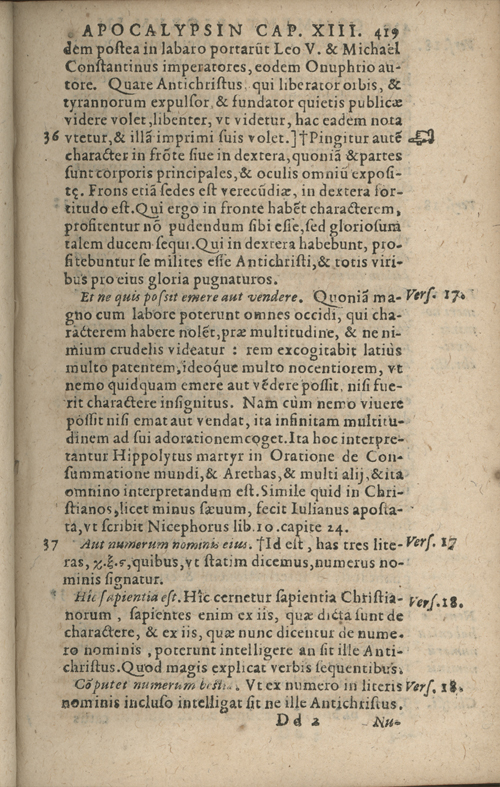 APOCALYPSIN CAP. XIII. 419
dem postea in labaro portarūt Leo V. & Michael
Constantinus imperatores, eodem Onuphrio au-
tore. Quare Antichristus qui liberator orbis, &
tyrannorum expulsor & fundator quietis publicæ
videre volet, libenter, vt videtur, hac eadem nota
36 vtetur, & illā imprimi suis volet.] †Pingitur autē
character in frōte siue in dextera, quoniā & partes
sunt corporis principales, & oculis omniū exposi-
tę. Frons etiā sedes est verecūdiæ, in dextera for-
titudo est. Qui ergo in fronte habēt characterem,
profitentur nō pudendum sibi esse, sed gloriosum
talem ducem sequi. Qui in dextera habebunt, pro-
fitebuntur se milites esse Antichristi, & totis viri-
bus pro eius gloria pugnaturos.
Et ne quis possit emere aut vendere. Quoniā ma- Vers. 17.
gno cum labore poterunt omnes occidi, qui cha-
racterem habere nolēt, præ multitudine, & ne ni-
mium crudelis videatur : rem excogitabit latiùs
multo patentem, ideoque multo nocentiorem, vt
nemo quidquam emere aut vēdere possit, nisi fue-
rit charactere insignitus. Nam cùm nemo viuere
possit nisi emat aut vendat, ita infinitam multitu-
dinem ad sui adorationem coget. Ita hoc interpre-
tantur Hippolytus martyr in Oratione de Con-
summatione mundi, & Arethas, & multi alij, & ita
omnino interpretandum est. Simile quid in Chri-
stianos, licet minus sæuum, fecit Iulianus aposta-
ta, vt scribit Nicephorus lib. 10. capite 24.
37 Aut numerum nominis eius. †Id est, has tres lite- Vers. 17
ras, χ.ξ.ς, quibus, vt statim dicemus, numerus no-
minis signatur.
Hic sapientia est. Hîc cernetur sapientia Christia- Vers. 18.
norum , sapientes enim ex iis, quæ dicta sunt de
charactere, & ex iis, quæ nunc dicentur de nume-
ro nominis , poterunt intelligere an sit ille Anti-
christus. Quod magis explicat verbis sequentibus.
Cōputet numerum bestiæ. Vt ex numero in literis Vers. 18.
nominis incluso intelligat sit ne ille Antichristus.
Dd 2 Nu-